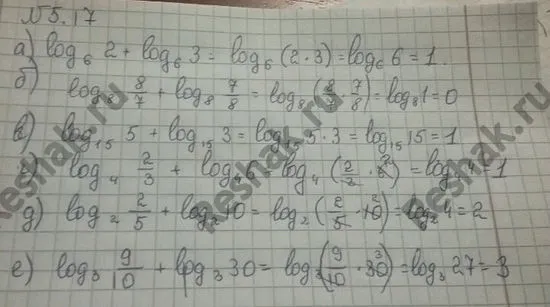 №5.17
а) log₆ 2 + log₆ 3 = log₆ (2·3) = log₆ 6 = 1.
б) log₈ 8/7 + log₈ 7/8 = log₈ (8/7 · 7/8) = log₈ 1 = 0
в) log₁₅ 5 + log₁₅ 3 = log₁₅ 5·3 = log₁₅ 15 = 1
г) log₄ 2/3 + log₄ 6 = log₄ (2/3 · 6²) = log₄ 4 = 1
д) log₂ 2/5 + log₂ 10 = log₂ (2/5 · 10²) = log₂ 4 = 2
е) log₃ 9/10 + log₃ 30 = log₃ (9/10 · 30³) = log₃ 27 = 3
Reshak.ru